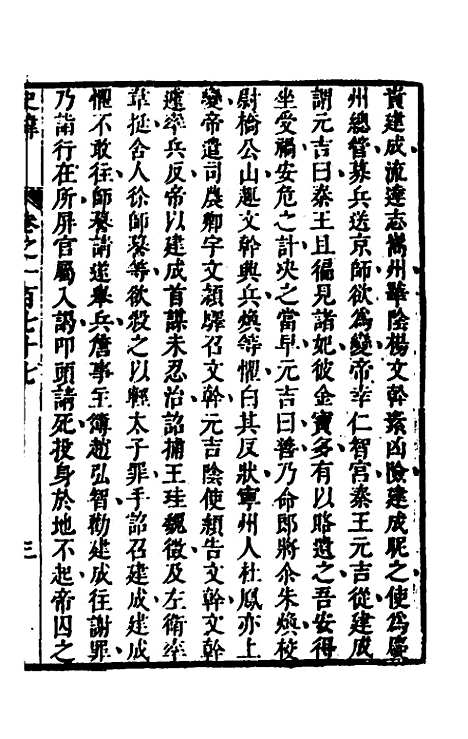 責建成流達志嶲州華陰楊文幹素凶險建成昵之使為慶
州總管募兵送京師欲為變帝幸仁智宮秦王元吉從建成
謂元吉曰秦王且徧見諸妃彼金寶多有以賂遺之吾安得
坐受禍安危之計决之當早元吉曰善乃命郎將尒朱煥校
尉橋公山趣文幹興兵煥等懼白其反狀寧州人杜鳳亦上
變帝遣司農卿宇文頴驛召文幹元吉陰使頴告文幹文幹
遽率兵反帝以建成首謀未忍治詔捕王珪魏徵及左衛率
韋挺舍人徐師謩等欲殺之以輕太子罪手詔召建成建成
懼不敢往師謩請遂舉兵詹事主簿趙弘智勸建成往謝罪
乃詣行在所屏官屬入謁叩頭請死投身於地不起帝囚之
史緯 卷之一百七十七 三